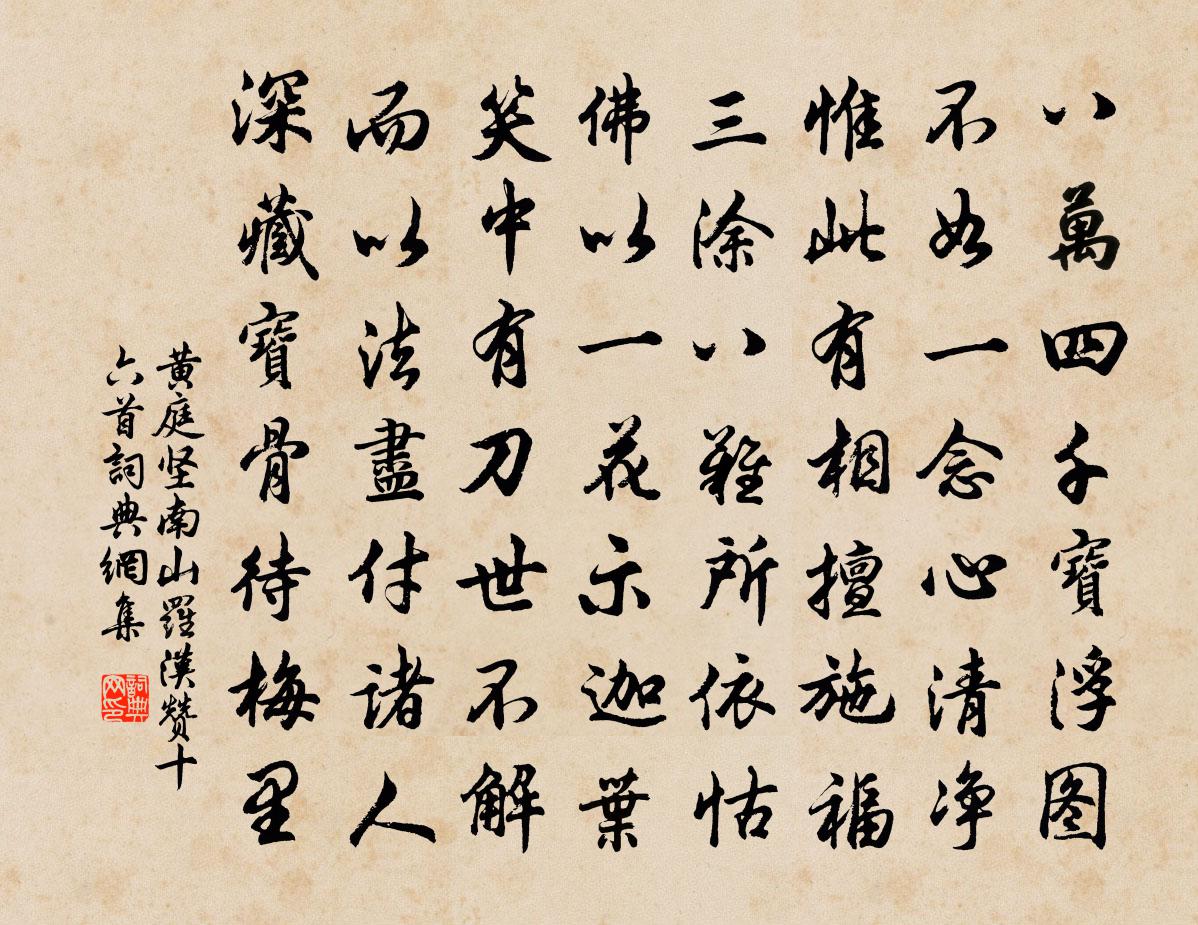 八萬四千寶浮图
不如一念心清净
惟此有相擅施福
三涂八難所依怙
佛以一花示迦葉
笑中有刀世不解
而以法盡付諸人
深藏寶骨待梅里
黄庭坚南山羅漢赞十
六首詞典網集
詞典
网印